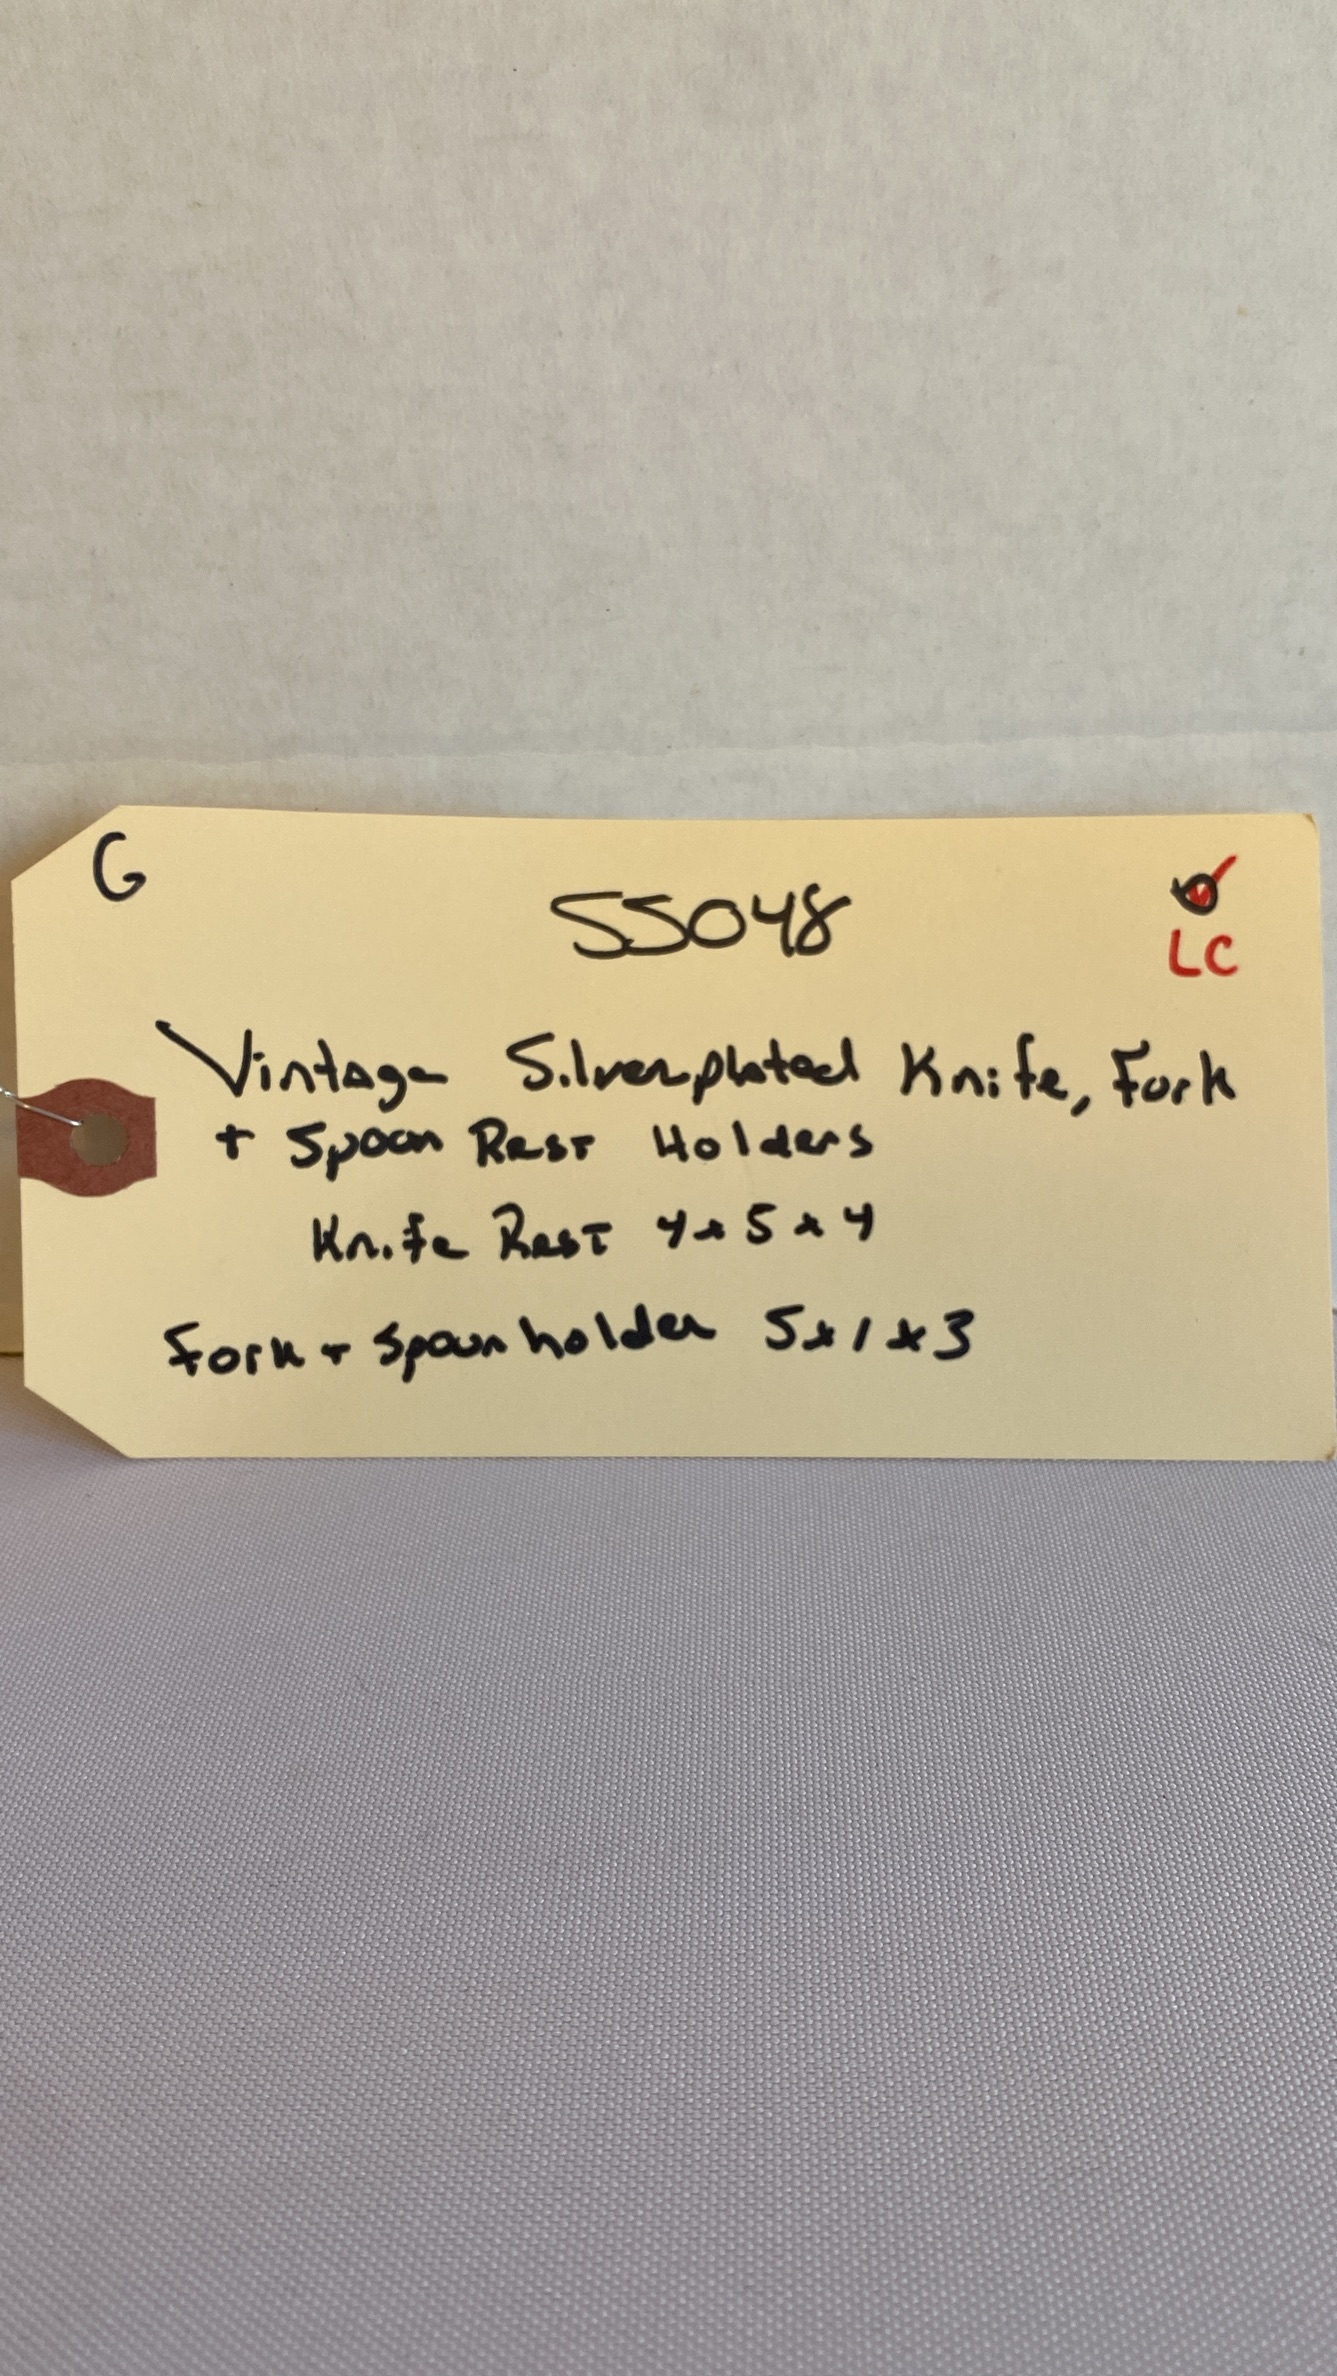 G
55048
LC
Vintage Silverplated Knife, Fork
+ Spoon Rest Holders
Knife Rest 4x5x4
Fork + Spoon holder 5x1x3